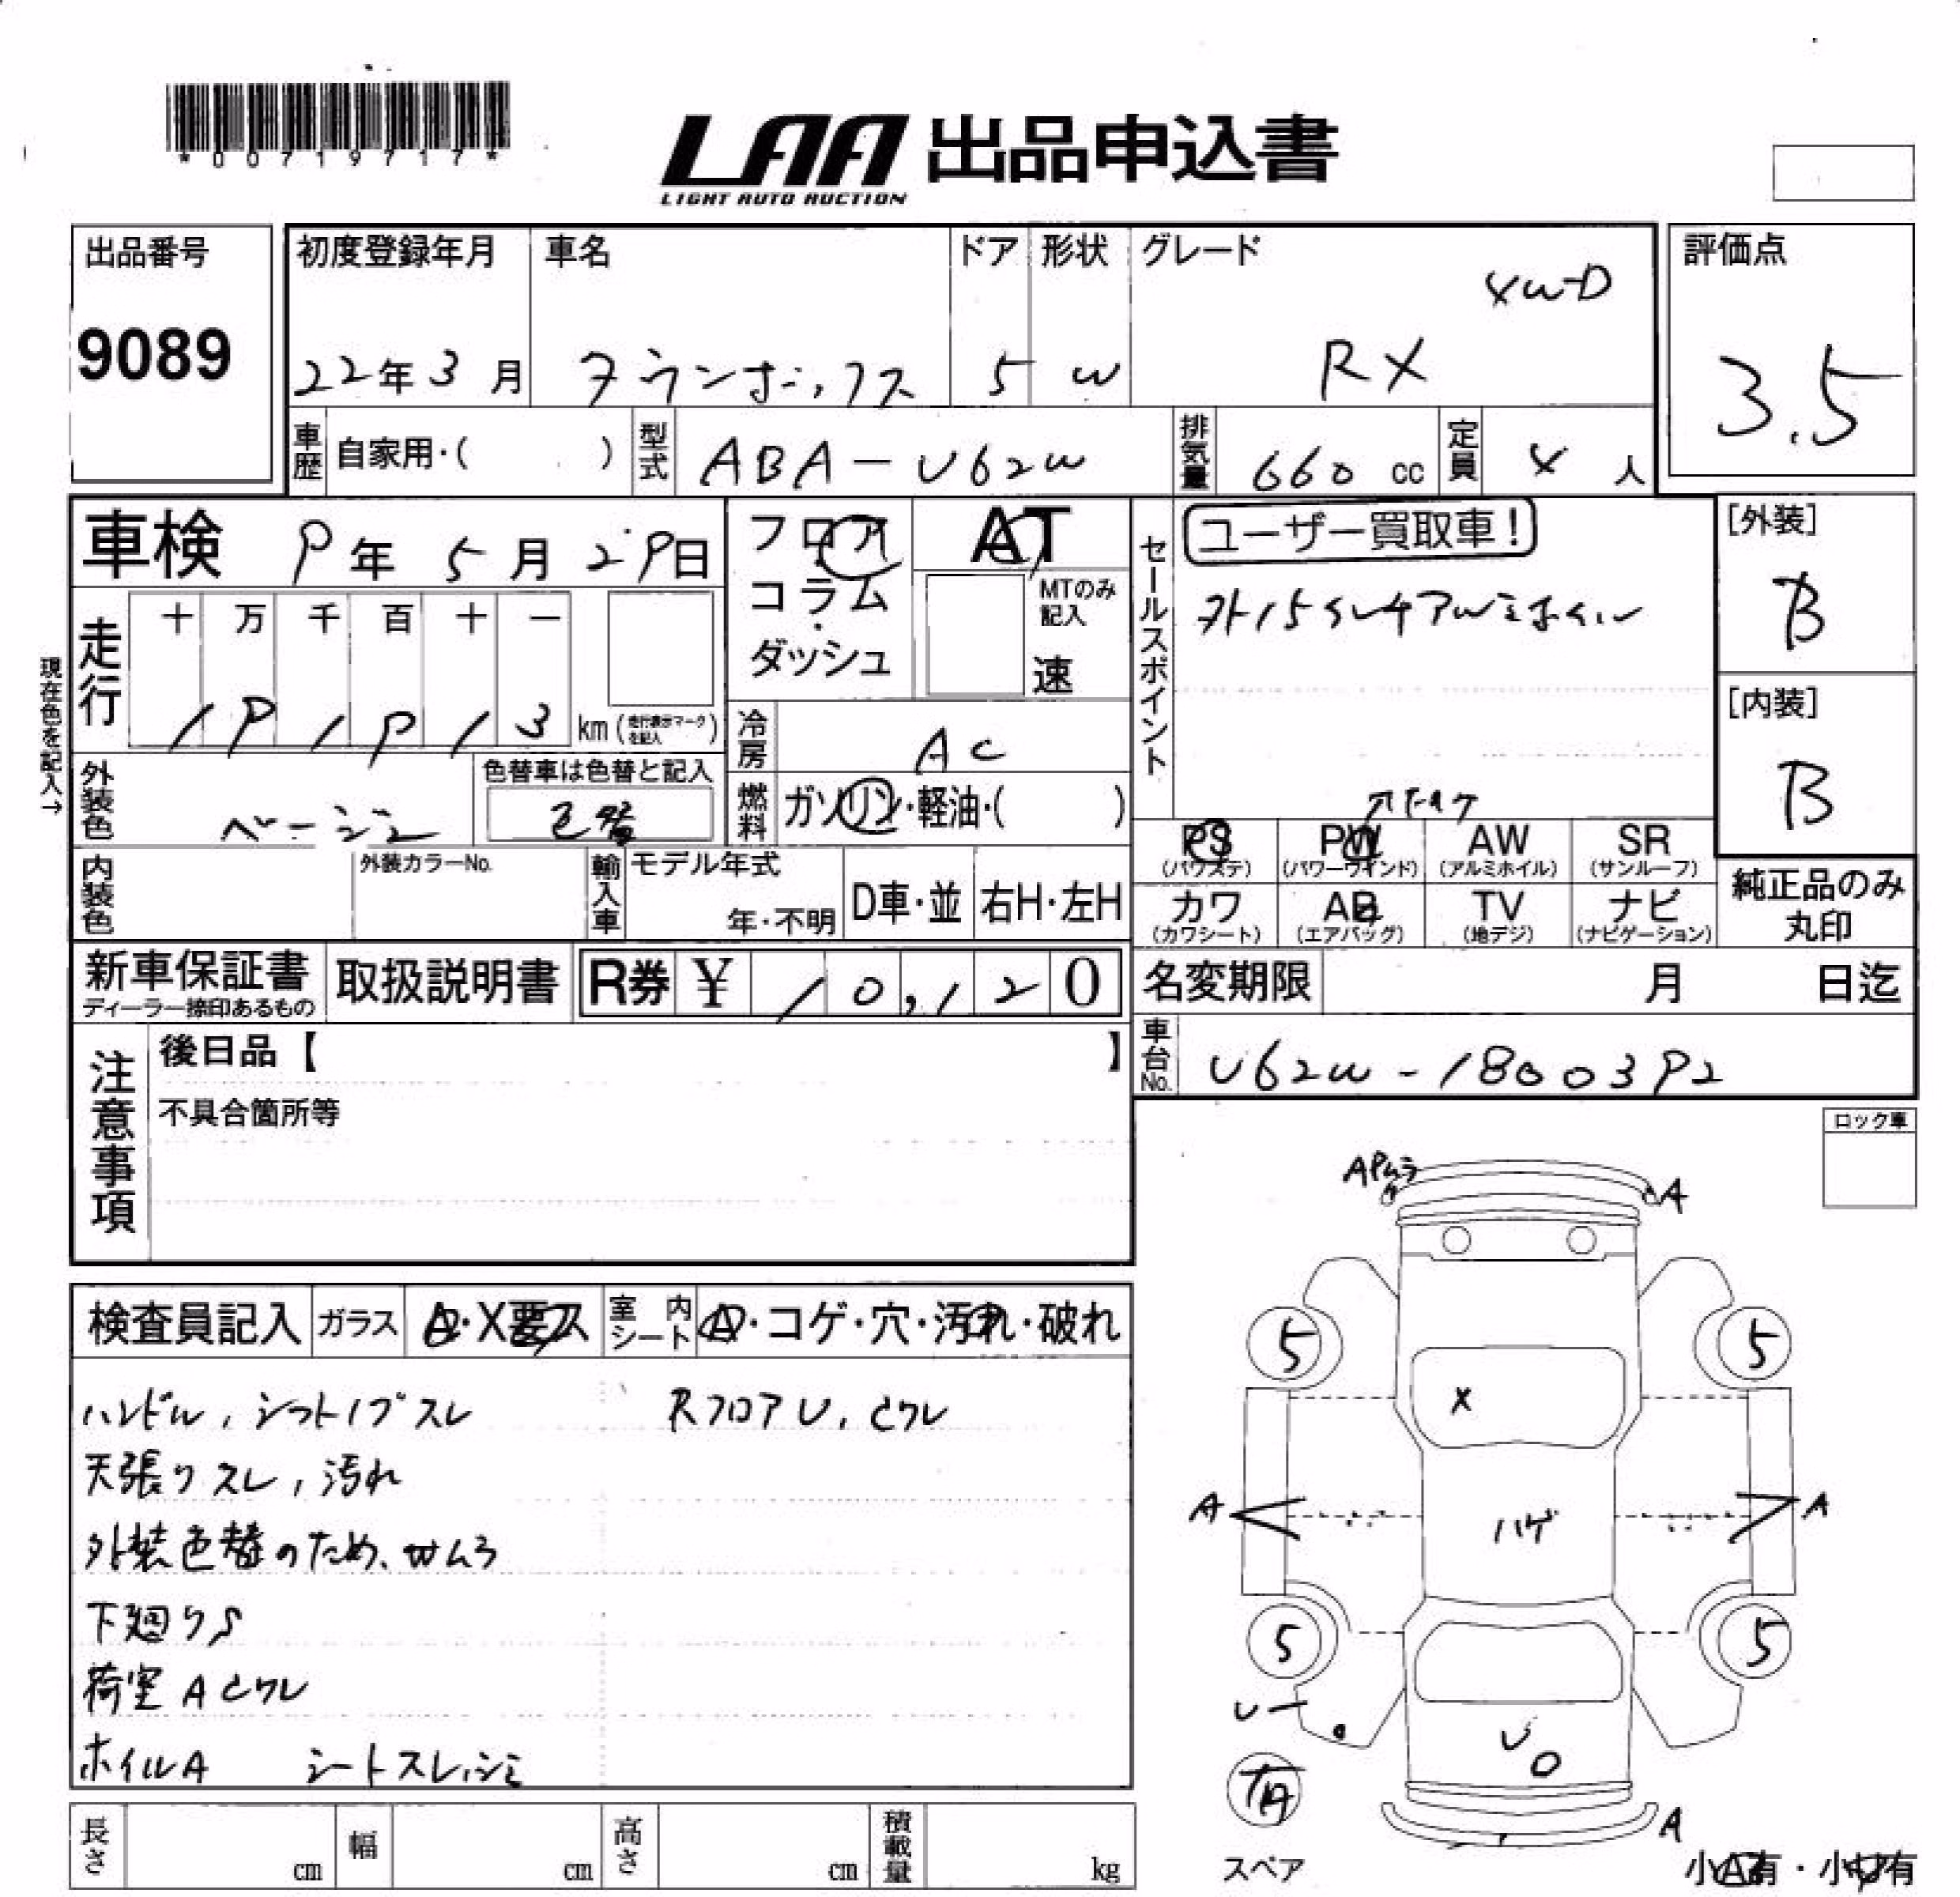 *00719717*
LAA 出品申込書
LIGHT AUTO AUCTION
出品番号
9089
初度登録年月
22年3月
車名
タウンボックス
ドア
5
形状
W
グレード
4WD
RX
評価点
3.5
車歴 自家用・( )
型式 ABA-U62W
排気量 660 cc
定員 4 人
車検 9年 5月 29日
フロア
コラム
ダッシュ
AT
MTのみ記入
速
セールスポイント
ユーザー買取車!
[外装]
B
[内装]
B
現在色を記入→
走行
十 万 千 百 十 一
1 9 1 9 1 3 km (走行表示マークを記入)
冷房 AC
外装色 ベージュ
色替車は色替と記入
色替
燃料 ガソリン・軽油・( )
内装色
外装カラーNo.
輸入車
モデル年式
年・不明
D車・並
右H・左H
PS (パワステ)
PW (パワーウインド)
AW (アルミホイル)
SR (サンルーフ)
カワ (カワシート)
AB (エアバッグ)
TV (地デジ)
ナビ (ナビゲーション)
純正品のみ
丸印
新車保証書
ディーラー捺印あるもの
取扱説明書
R券 ¥ 10,120
名変期限 月 日迄
車台No. U62W-1800392
注意事項
後日品【 】
不具合箇所等
ロック車
検査員記入
ガラス A・X要ス
室内シート A・コゲ・穴・汚れ・破れ
ハンドル,シフトノブスレ
Rフロア U,ヒワレ
天張りスレ,汚れ
外装色替のため、Wムラ
下廻りS
荷室 A ヒワレ
ホイルA シートスレ,シミ
APムラ
A
5
5
X
A
ハゲ
A
5
5
U
U
有
スペア
A
小A有・小U有
長さ cm
幅 cm
高さ cm
積載量 kg